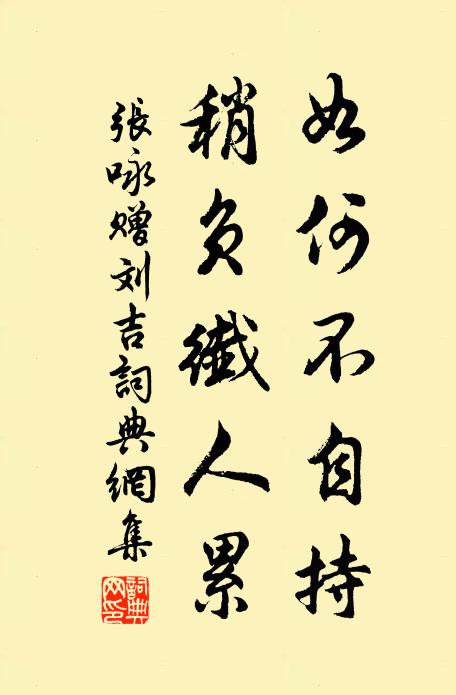 如何不自持
稍负纖人累
張咏赠刘吉詞典網集
詞典网印